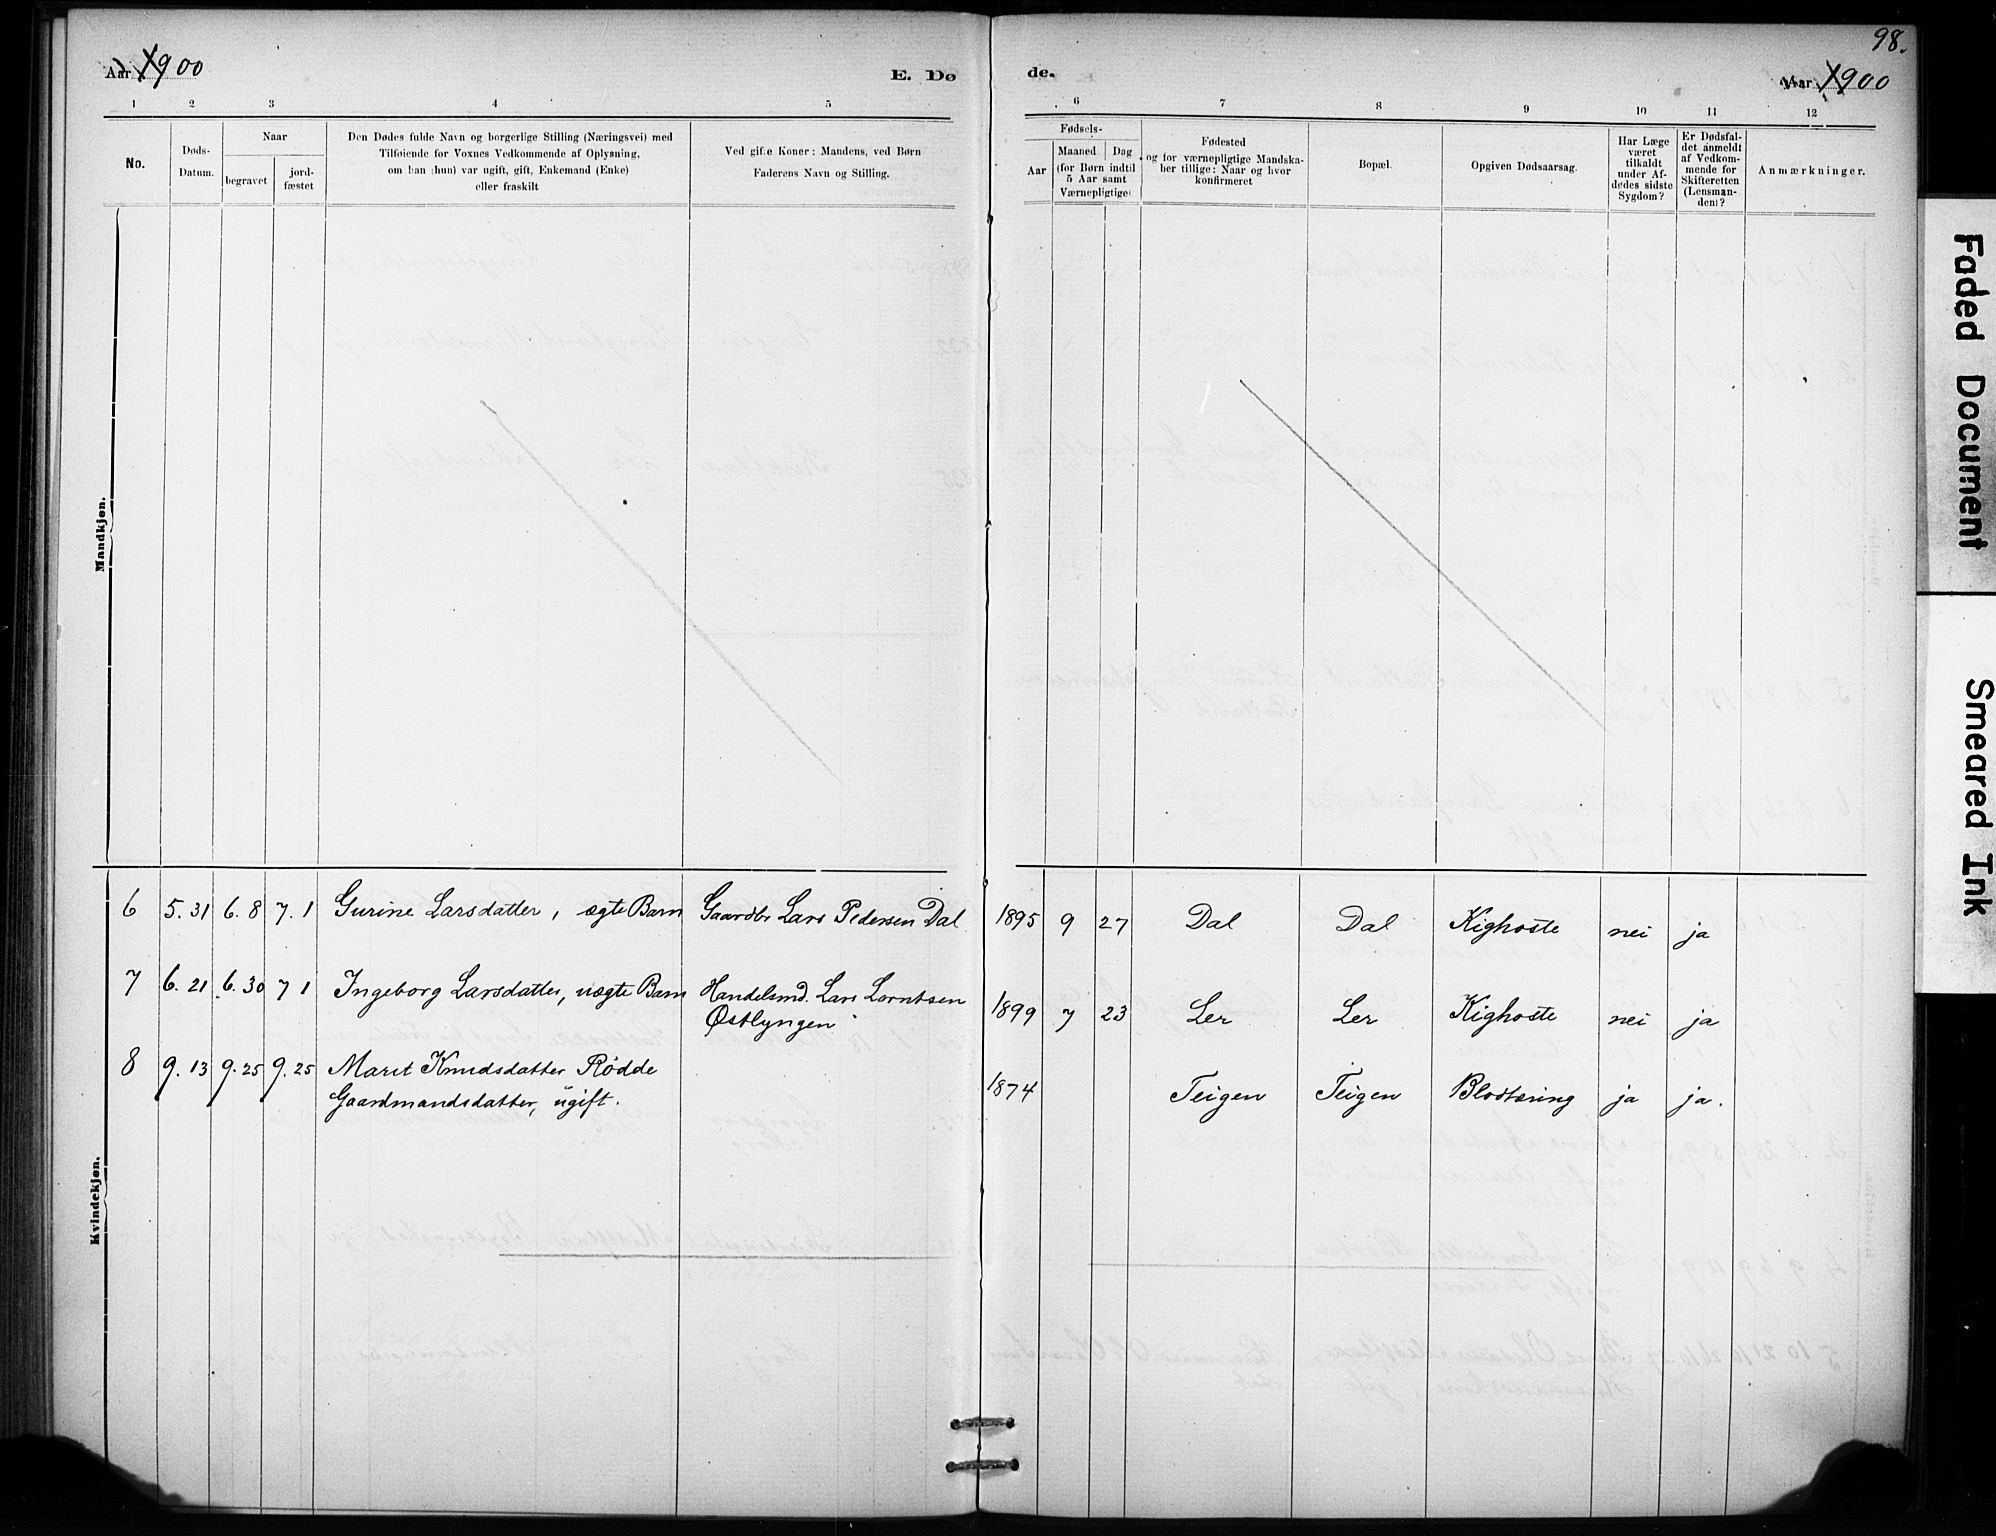 Aar 1900
E. Dø
de.
98.
Aar 1900
1 2 3 4 5 6 7 8 9 10 11 12
No.
Døds-
Datum.
Naar
begravet
jord-
fæstet
Den Dødes fulde Navn og borgerlige Stilling (Næringsvei) med
Tilføiende for Voxnes Vedkommende af Oplysning,
om han (hun) var ugift, gift, Enkemand (Enke)
eller fraskilt
Ved gifte Koner: Mandens, ved Børn
Faderens Navn og Stilling.
Fødsels-
Aar
Maaned
Dag
(for Børn indtil
5 Aar samt
Værnepligtige)
Fødested
og for værnepligtige Mandska-
ber tillige: Naar og hvor
konfirmeret
Bopæl.
Opgiven Dødsaarsag.
Har Læge
været
tilkaldt
under Af-
dødes sidste
Sygdom?
Er Dødsfal-
det anmeldt
af Vedkom-
mende for
Skifteretten
(Lensman-
den)?
Anmærkninger.
Mandkjøn.
Kvindekjøn.
6 5.31 6.8 7.1 Gurine Larsdatter, ægte Barn Gaardbr Lars Pedersen Dal 1895 9 27 Dal Dal Kighoste nei ja
7 6.21 6.30 7 1 Ingeborg Larsdatter, uægte Barn Handelsmd. Lars Lorntsen
Østlyngen 1899 7 23 Ler Ler Kighoste nei ja
8 9.13 9.25 9.25 Marit Knudsdatter Rødde
Gaardmandsdatter, ugift. 1874 Teigen Teigen Blodtæring ja ja.
Faded Document
Smeared Ink